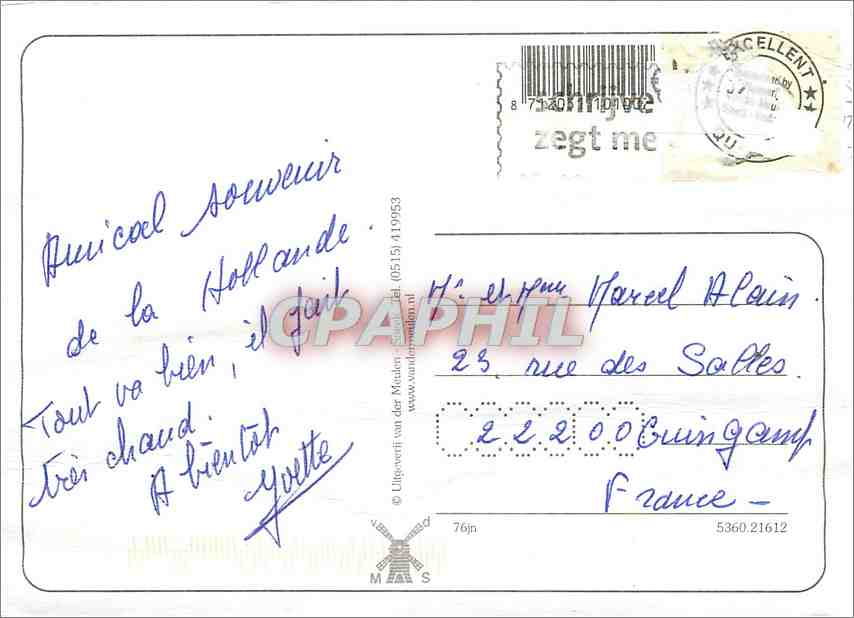 EXCELLENT
QU
schrijve
8 712051 101002
zegt me
Amical souvenir
de la Hollande.
Tout va bien, il fait
très chand.
A bientôt
Yvette
© Uitgeverij van der Meulen - Sneek Tel. (0515) 419953
www.vandermeulen.nl
CPAPHIL
Mr et Mme Marcel Alain.
23. rue des Salles.
22200 Guingamp
France -
76jn
5360.21612
v d
M S